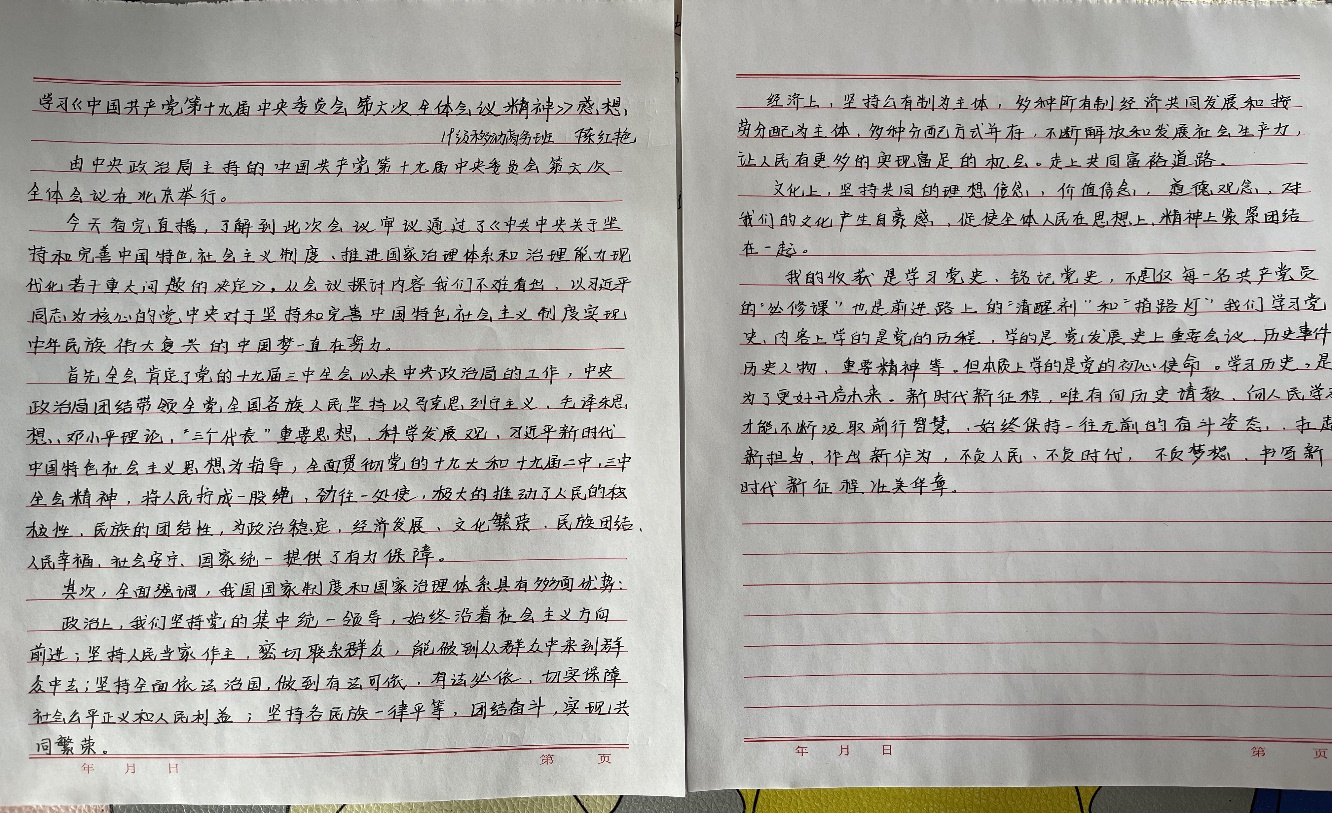 学习《中国共产党第十九届中央委员会第六次全体会议精神》感想
19级移动商务班 陈红艳
由中央政治局主持的中国共产党第十九届中央委员会第六次
全体会议在北京举行。
今天看完直播，了解到此次会议审议通过了《中共中央关于坚
持和完善中国特色社会主义制度、推进国家治理体系和治理能力现
代化若干重大问题的决定》。从会议探讨内容我们不难看出，以习近平
同志为核心的党中央对于坚持和完善中国特色社会主义制度实现
中华民族伟大复兴的中国梦一直在努力。
首先全会肯定了党的十九届三中全会以来中央政治局的工作，中央
政治局团结带领全党全国各族人民坚持以马克思列宁主义、毛泽东思
想、邓小平理论，“三个代表”重要思想、科学发展观，习近平新时代
中国特色社会主义思想为指导，全面贯彻党的十九大和十九届二中、三中
全会精神，将人民拧成一股绳，劲往一处使，极大的推动了人民的积
极性、民族的团结性，为政治稳定，经济发展、文化繁荣、民族团结、
人民幸福、社会安宁、国家统一提供了有力保障。
其次，全面强调，我国国家制度和国家治理体系具有多方面优势：
政治上，我们坚持党的集中统一领导，始终沿着社会主义方向
前进；坚持人民当家作主，密切联系群众，能做到从群众中来到群
众中去；坚持全面依法治国，做到有法可依、有法必依，切实保障
社会公平正义和人民利益；坚持各民族一律平等，团结奋斗，实现共
同繁荣。
年 月 日 第 页
经济上，坚持公有制为主体，多种所有制经济共同发展和按
劳分配为主体，多种分配方式并存，不断解放和发展社会生产力，
让人民有更多的实现富足的机会。走上共同富裕道路。
文化上，坚持共同的理想信念、价值信念、道德观念，对
我们的文化产生自豪感，促使全体人民在思想上、精神上紧紧团结
在一起。
我的收获是学习党史、铭记党史，不仅是每一名共产党员
的“必修课”也是前进路上的“清醒剂”和“指路灯”我们学习党
史、内容上学的是党的历程，学的是党发展史上重要会议、历史事件
历史人物，重要精神等。但本质上学的是党的初心使命。学习历史，是
为了更好开启未来。新时代新征程，唯有向历史请教、向人民学习
才能不断汲取前行智慧，始终保持一往无前的奋斗姿态，扛起
新担当，作出新作为，不负人民、不负时代，不负梦想，书写新
时代新征程准美华章。
年 月 日 第 页